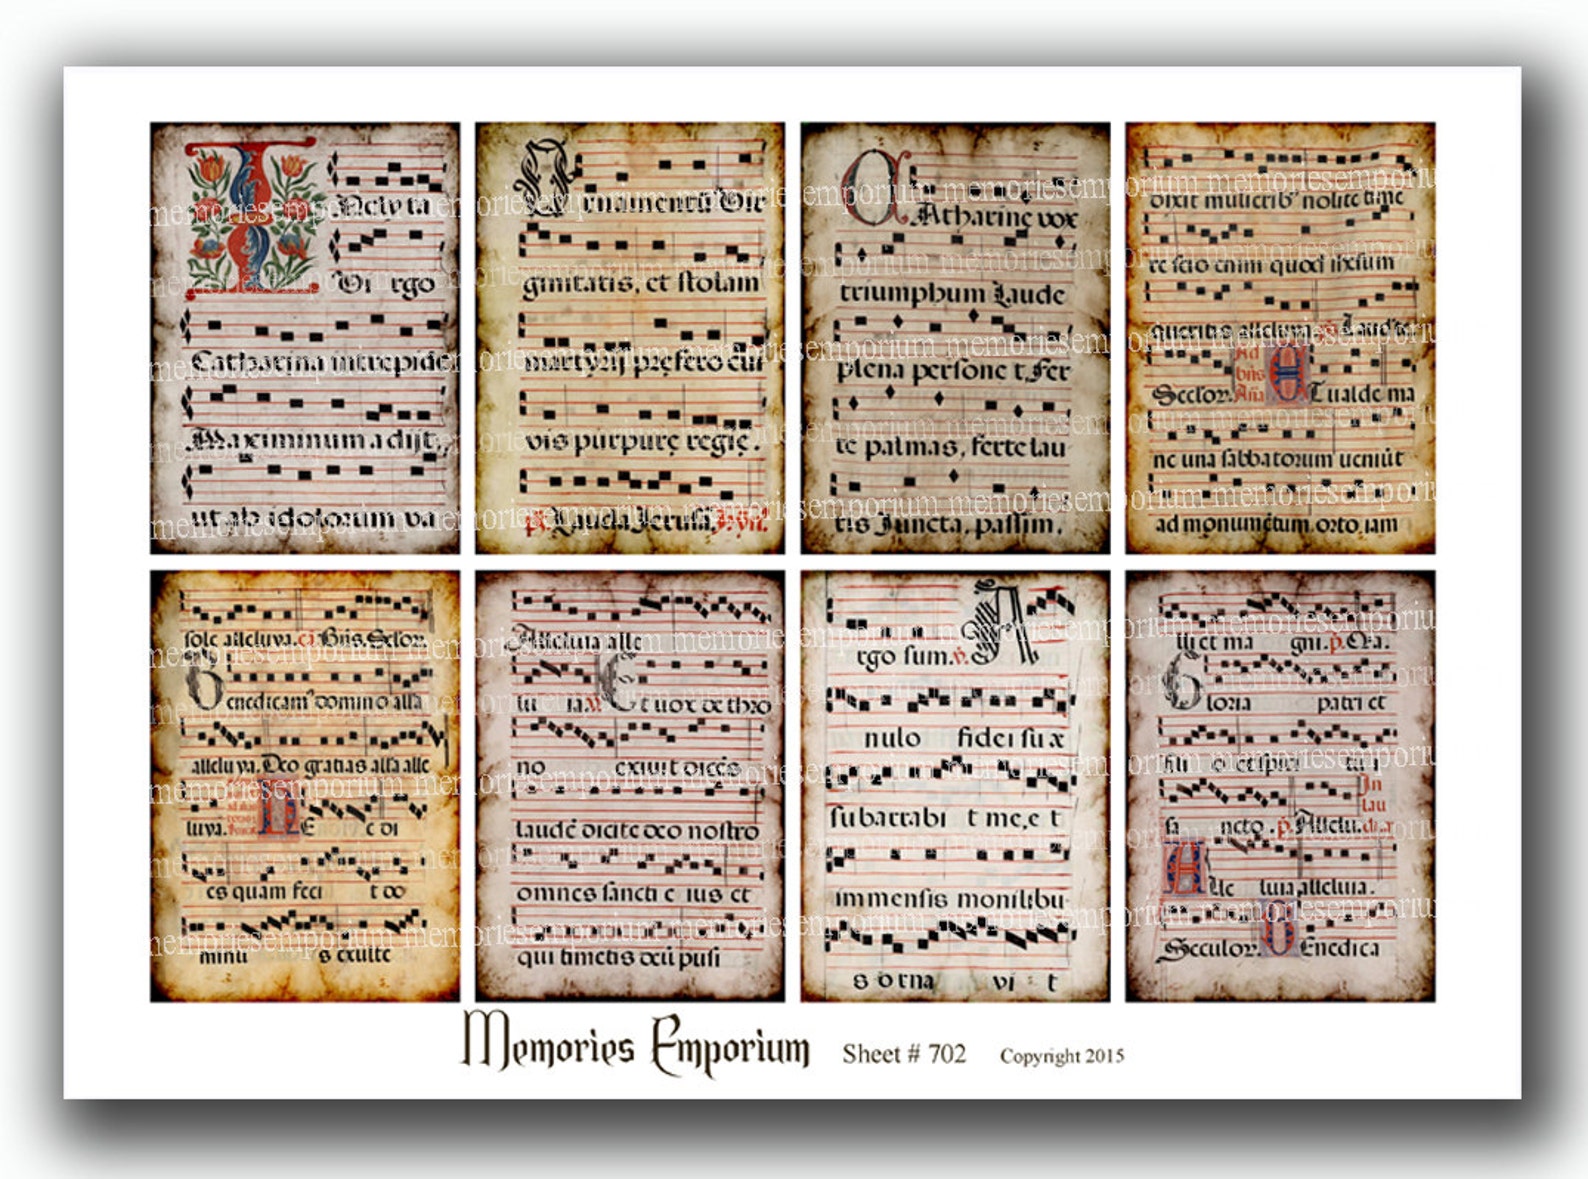 Inclyta
Virgo
Catharina intrepide
Maximinum adijt,
ut ab idolorum va
Ornamentū Vir
ginitatis, et stolam
martyrij prefero cui
vis purpurę regię.
Catharinę vox
triumphum Laude
plena persone t, Fer
te palmas, ferte lau
tis Juncta, passim.
dixit mulierib' nolite time
re scio enim quod
queritis alleluya
Seclor. Ad bn̄s An̄a Et ualde ma
ne una sabbatorum ueniūt
ad monumētum, orto, iam
sole alleluya. Seclor.
Benedicam' domino alla
alleluya. Deo gratias alla alle
luya.
es quam feci t do
minu s exulte
Alleluia alle
lu ia Et uox de thro
no exiuit dicēs
laudē dicite deo nostro
omnes sancti e ius et
qui timetis deū pusi
ergo sum.℣. A
nulo fidei su æ
subarrabi t me, e t
immensis monilibu
s o rna vi t
illi et ma gni. ℣. Ora.
Gloria patri et
fili
sa ncto. ℣. Allelu. In lau
Alle luia, alleluia.
Seculor. Benedica
Memories Emporium Sheet # 702 Copyright 2015
memoriesemporium memoriesemporium memoriesemporium